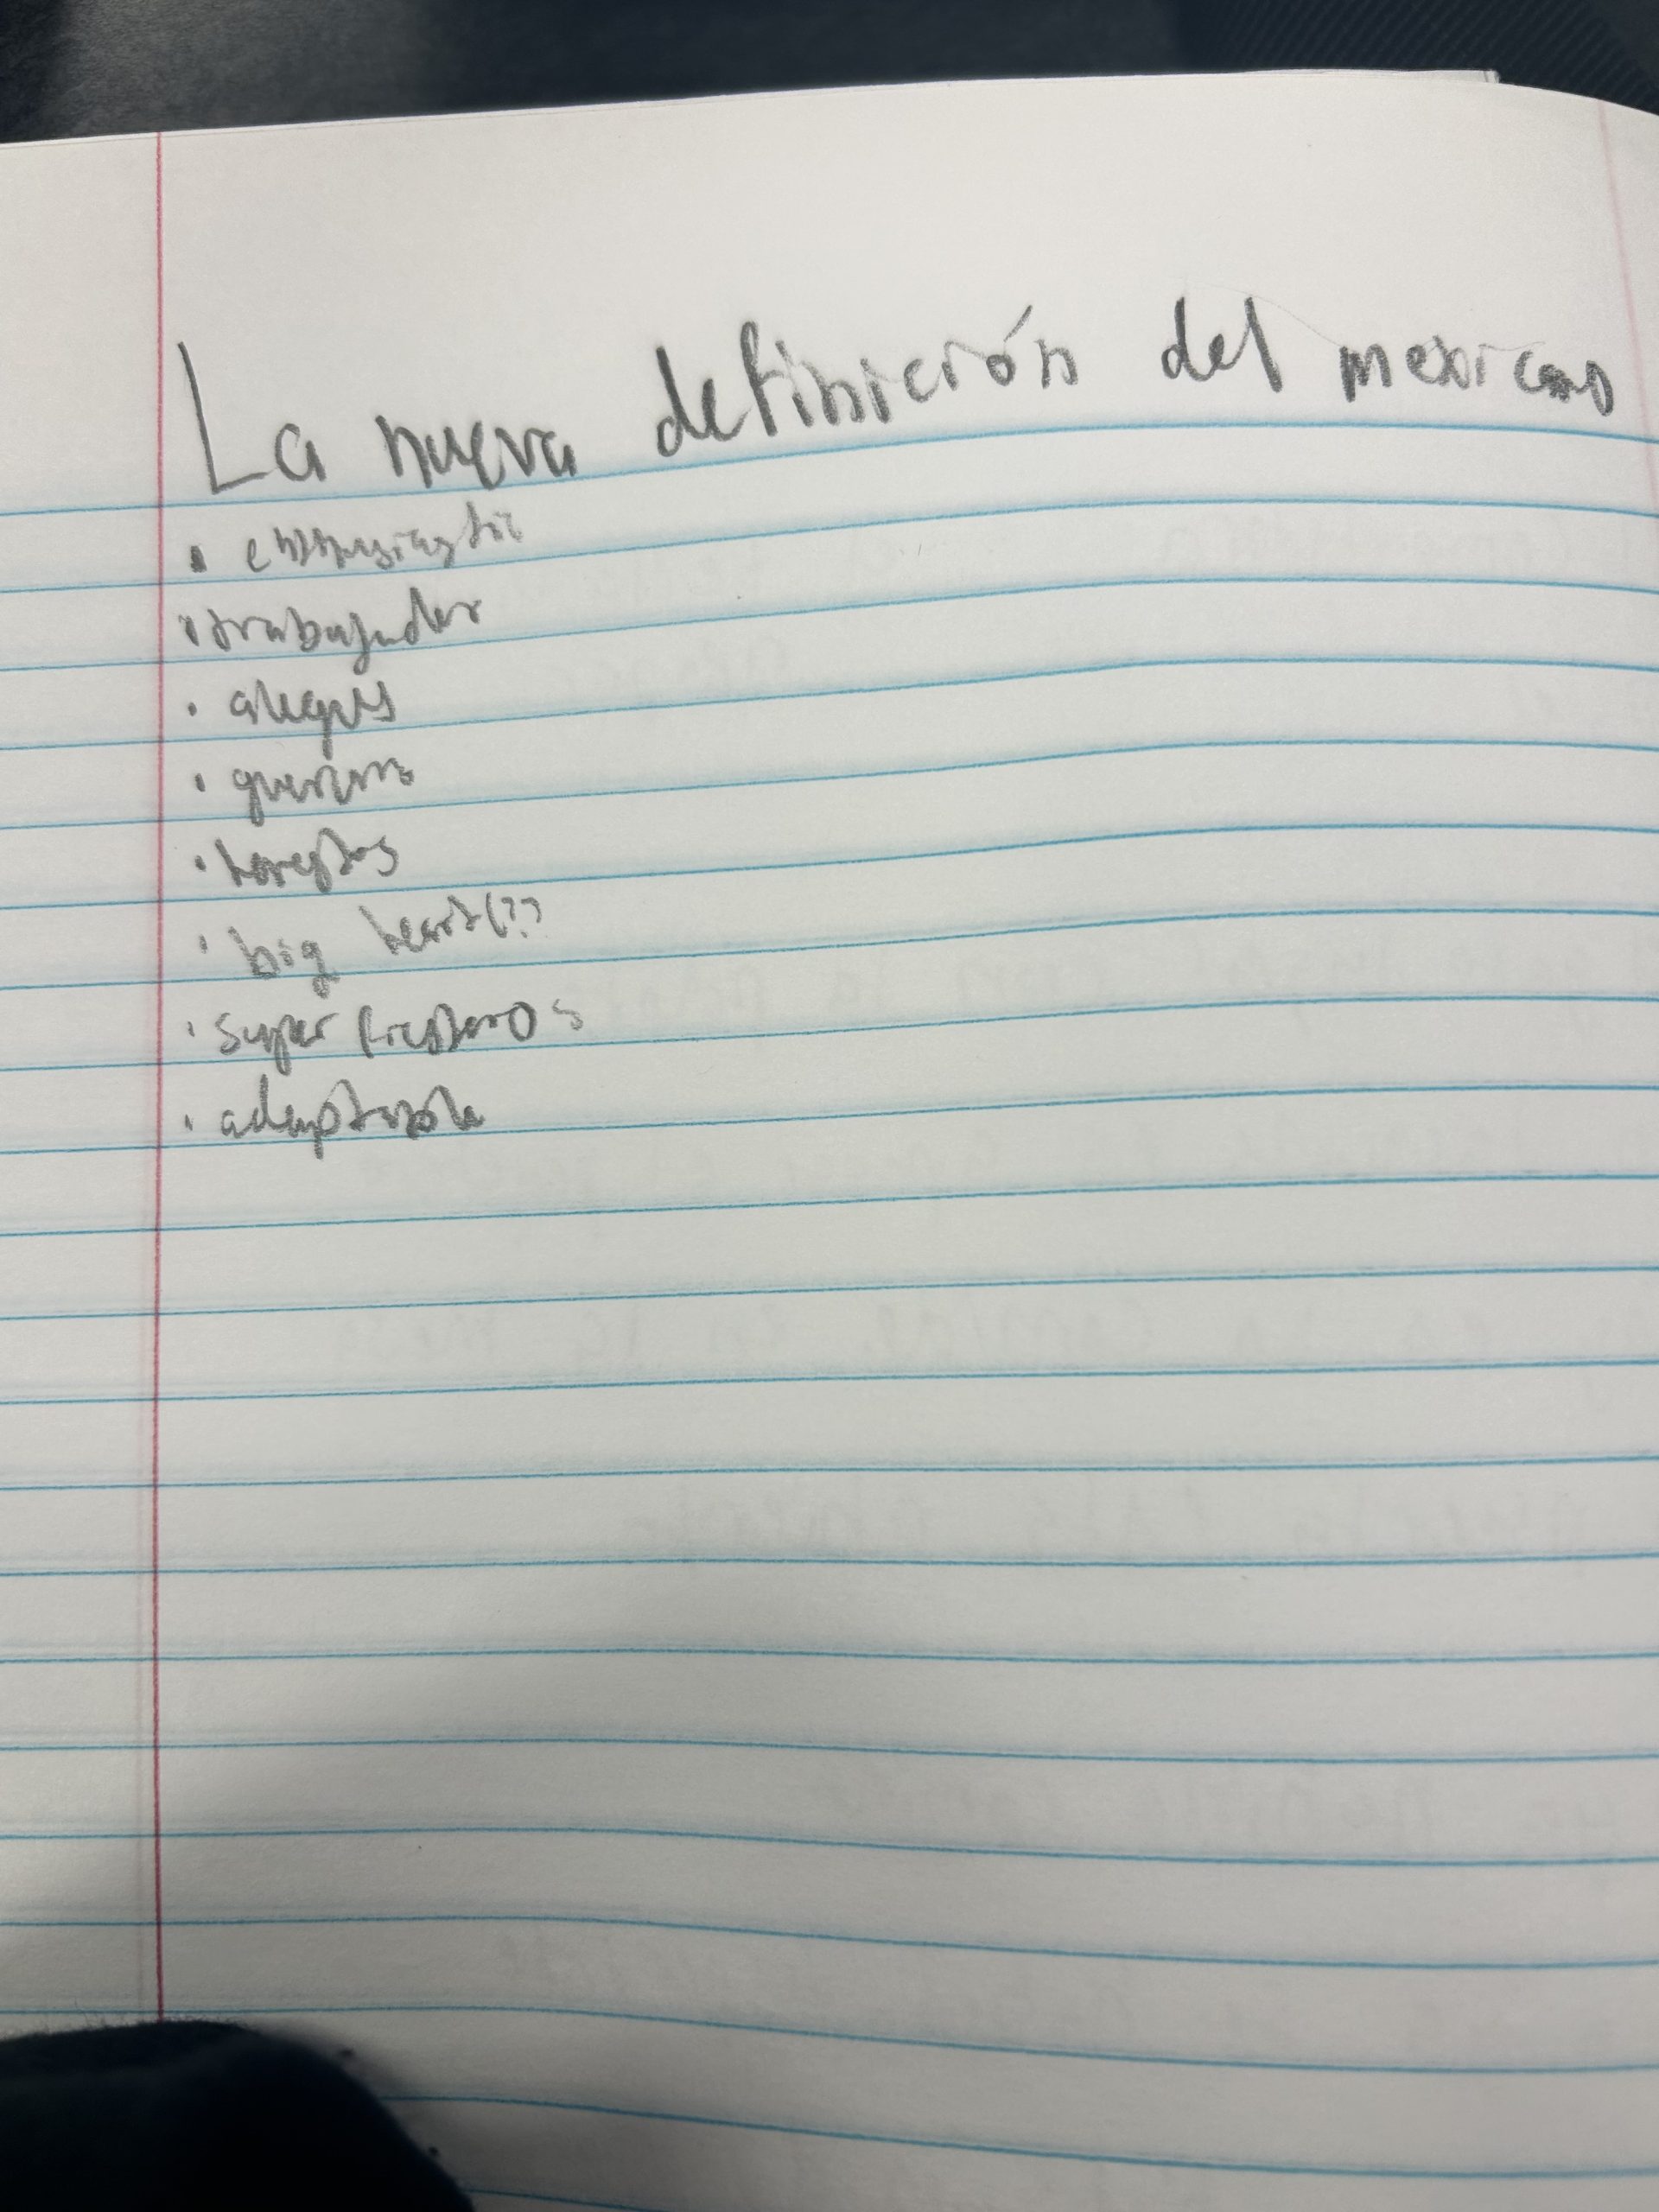 La nueva definición del mexicano
• enthusiastic
• trabajador
• alegres
•
• honestos
• big heart(??
• super fiesteros
• adaptable